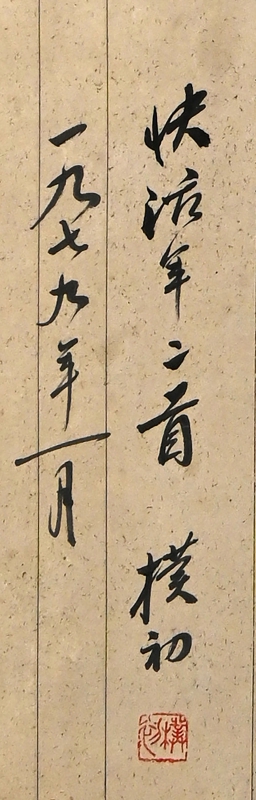 快活年二首 撲初
一九七九年一月
撲初